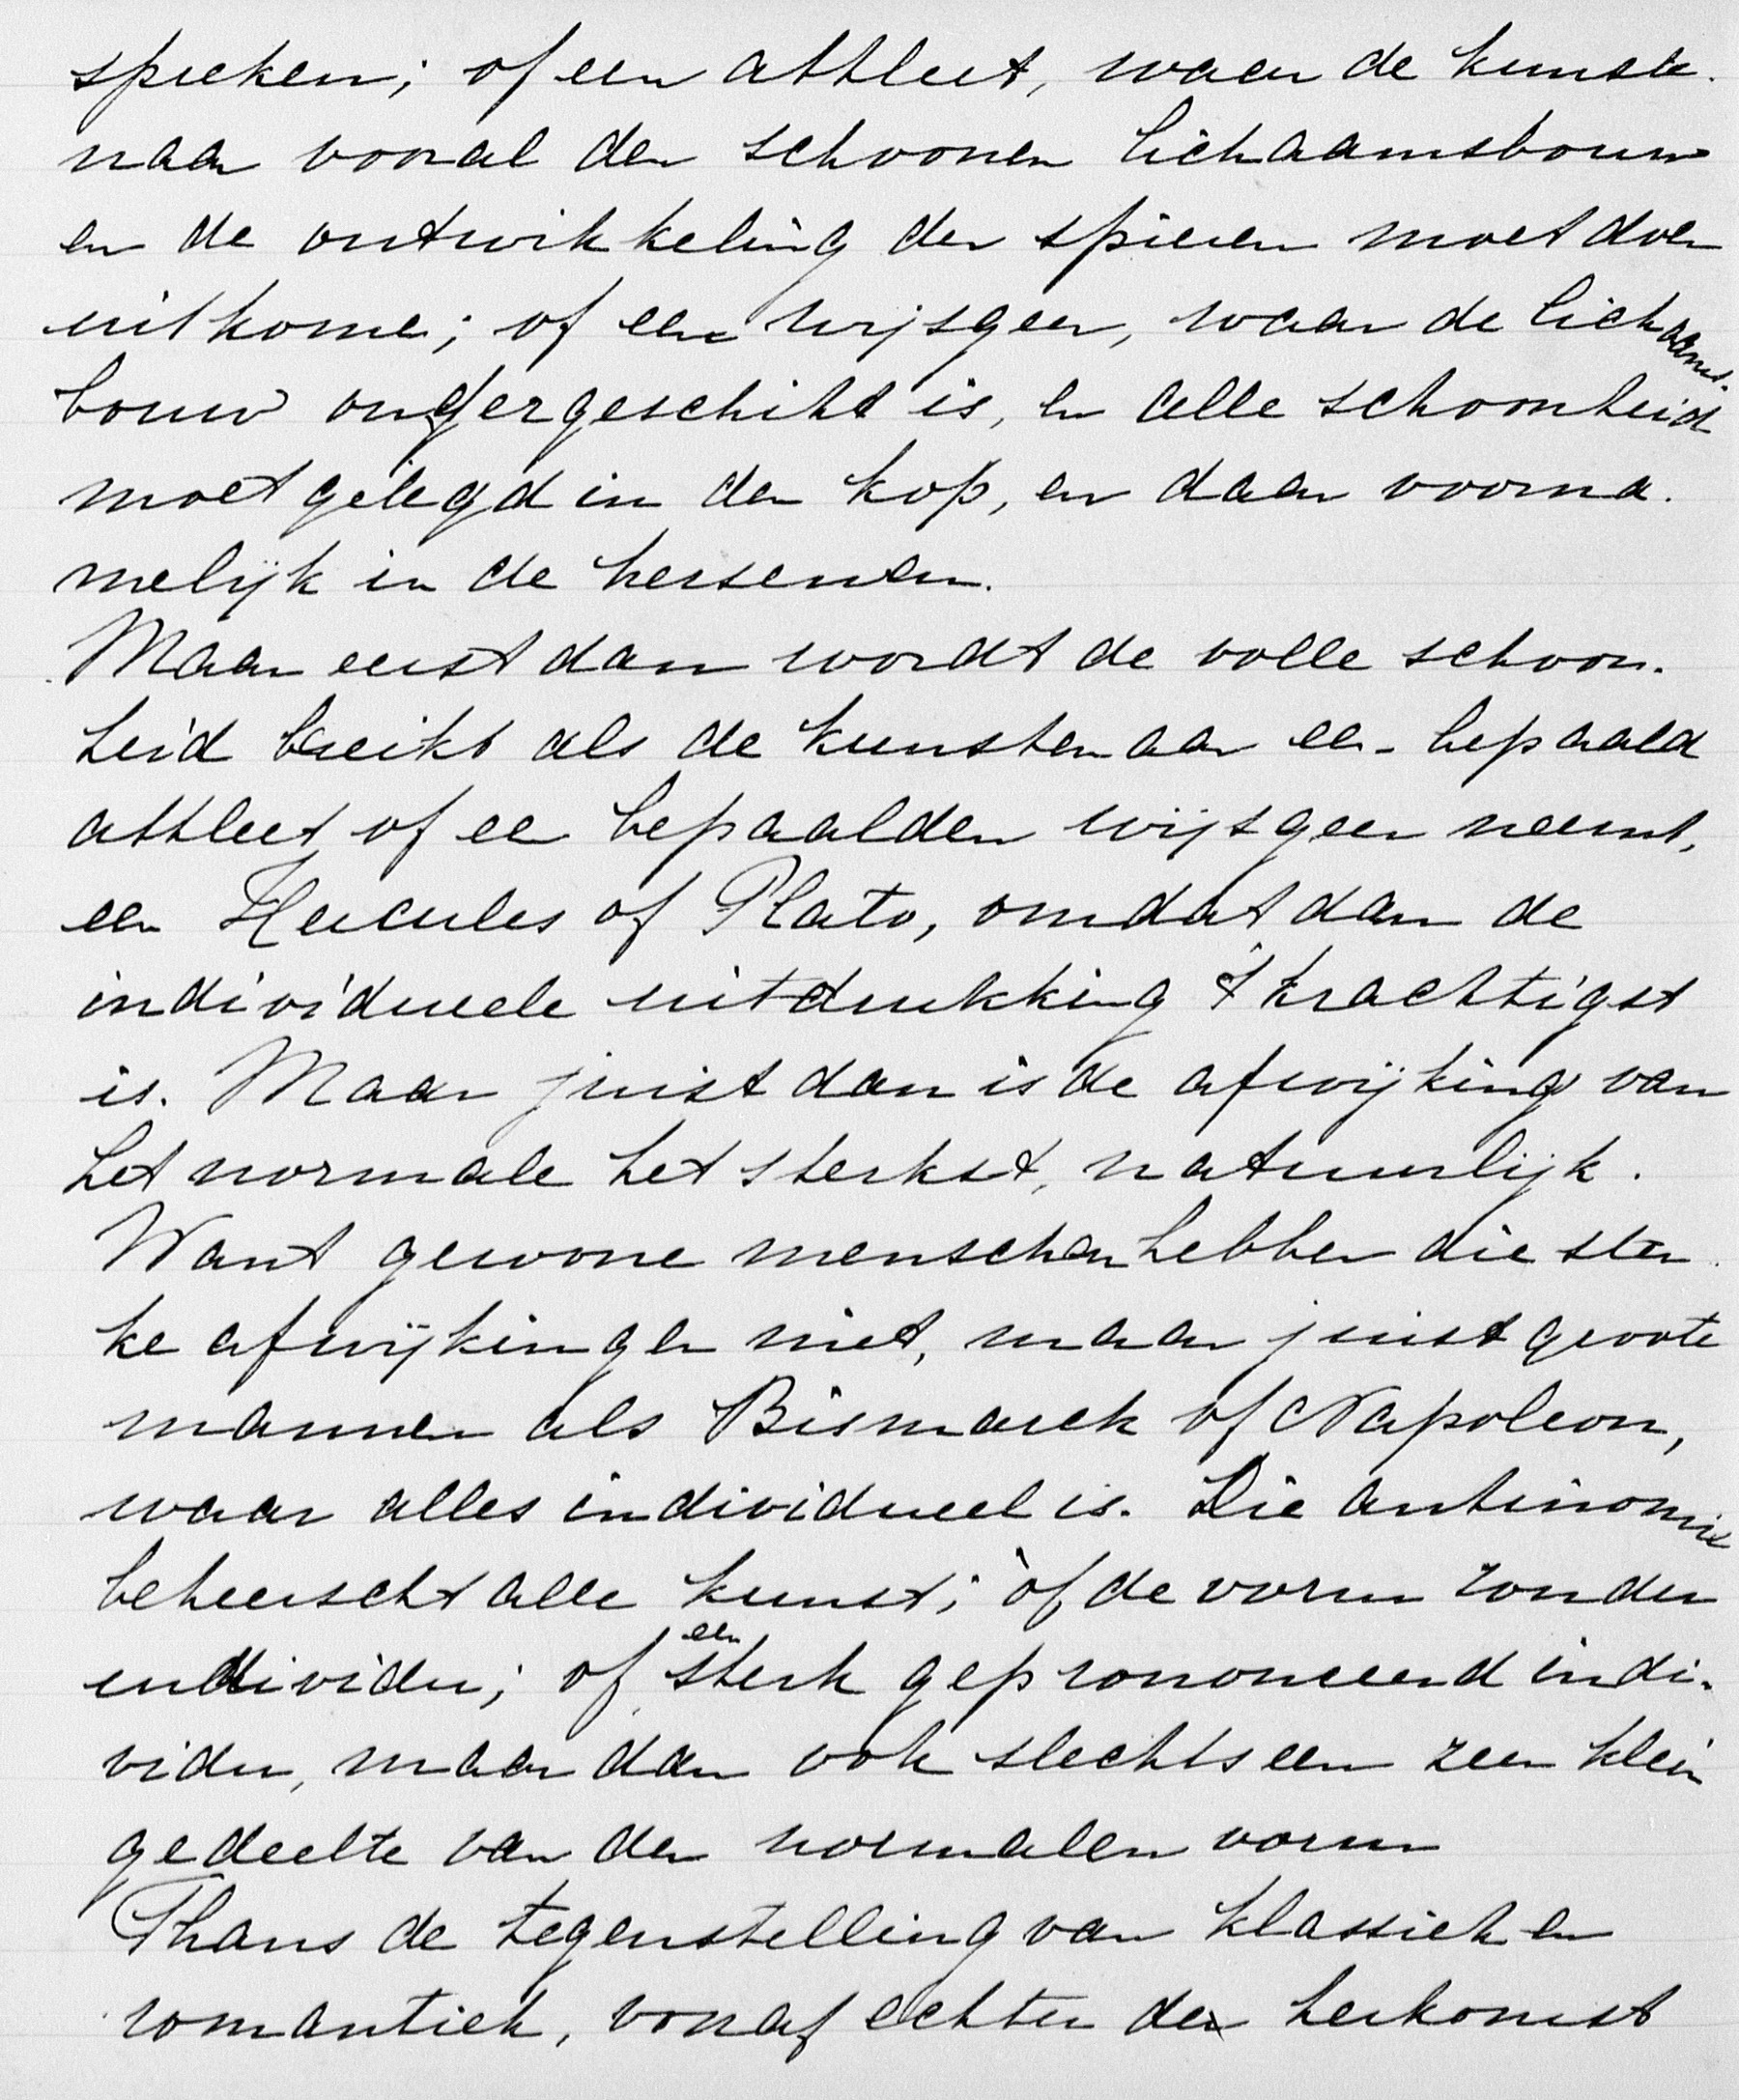 spreken; of een athleet, waar de kunste-
naar vooral den schoonen lichaamsbouw
en de ontwikkeling der spieren moet doen
uitkome; of een wijsgeer, waar de lichaams-
bouw ondergeschikt is, en alle schoonheid
moet gelegd in den kop, en daar voorna-
melijk in de hersenen.
Maar eerst dan wordt de volle schoon-
heid bereikt als de kunstenaar een bepaald
athleet of ee bepaalden wijsgeer neemt,
een Hercules of Plato, omdat dan de
individueele uitdrukking 't krachtigst
is. Maar juist dan is de afwijking van
het normale het sterkst, natuurlijk.
Want gewone menschen hebben die ster-
ke afwijkingen niet, maar juist groote
mannen als Bismarck of Napoleon,
waar alles individueel is. Die antinomie
beheerscht alle kunst; òf de vorm zonder
individu; of een sterk geprononceerd indi-
vidu, maar dan ook slechts een zeer klein
gedeelte van den normalen vorm
Thans de tegenstelling van klassiek en
romantiek, vooraf echter de herkomst